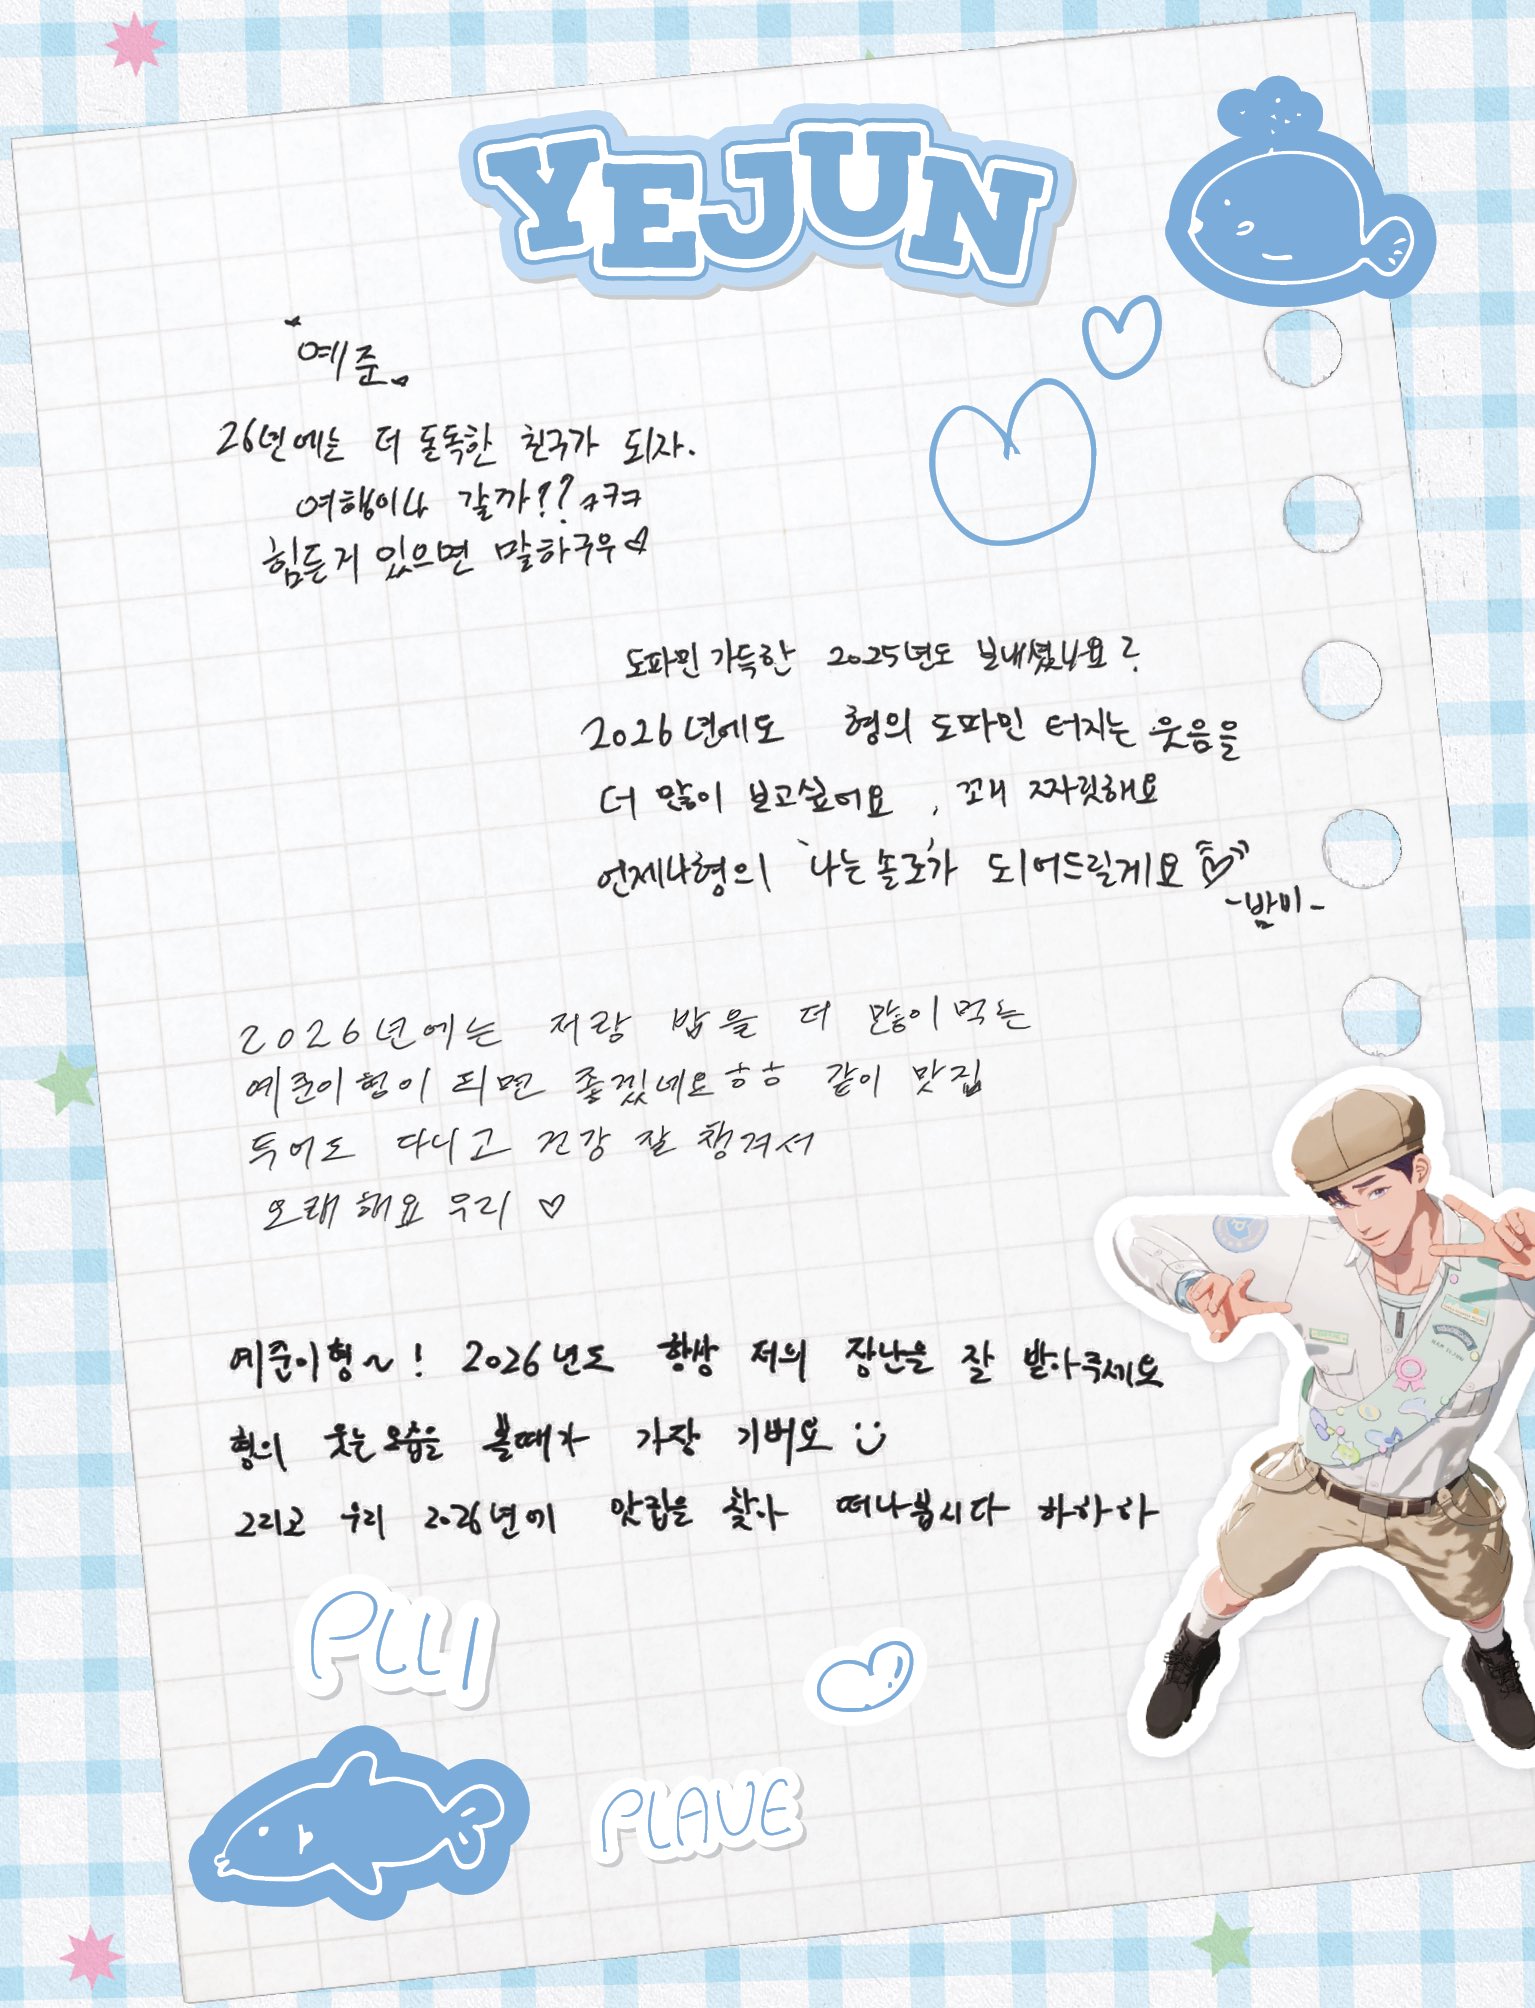 YEJUN
예준
26년에는 더 돈독한 친구가 되자.
여행이나 갈까?? ㅋㅋㅋ
힘든거 있으면 말하구우♡
도파민 가득한 2025년도 보내셨나요?
2026년에도 형의 도파민 터지는 웃음을
더 많이 보고싶어요, 꽤 짜릿해요
언제나 형의 '나는솔로'가 되어드릴게요♡
-밤비-
2026년에는 저랑 밥을 더 많이 먹는
예준이형이 되면 좋겠네요ㅎㅎ 같이 맛집
투어도 다니고 건강 잘 챙겨서
오래해요 우리 ♡
예준이형~! 2026년도 항상 저의 장난을 잘 받아주세요
형의 웃는모습을 볼때가 가장 기버요 :)
그리고 우리 2026년에 맛집을 찾아 떠나봅시다 하하하
PLLI
PLAVE